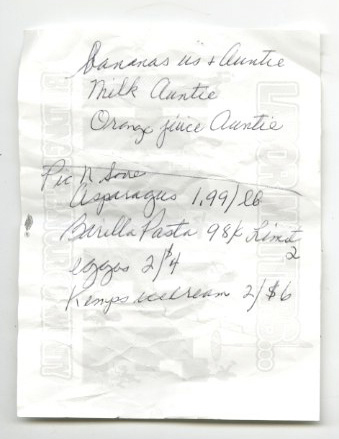 bananas us + Auntie
Milk Auntie
Orange jiice Auntie
Pic N Save
Asparagus 1.99/lb
Barilla Pasta 98¢ Limit
2
eggos 2/$4
Kemps icecream 2/$6